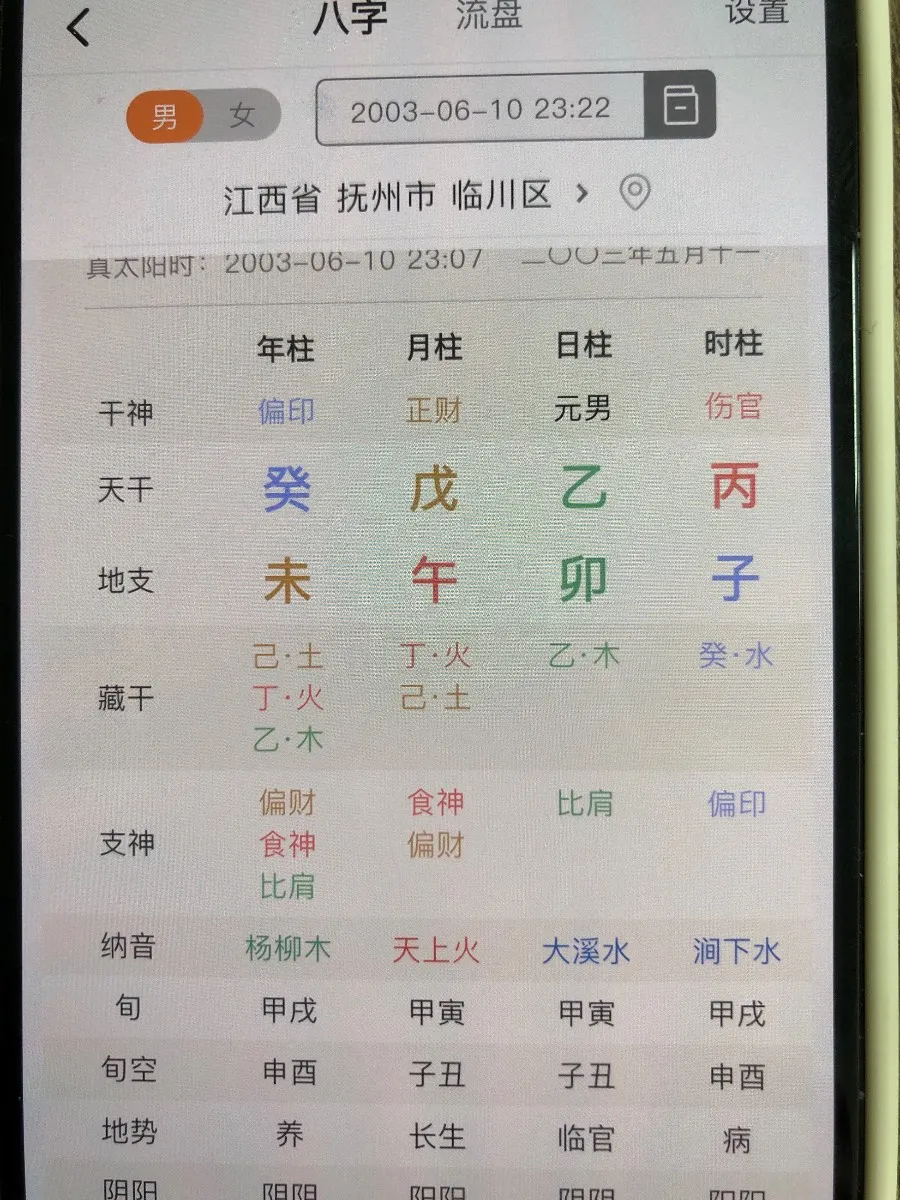 八字 流盘 设置
男 女 2003-06-10 23:22
江西省 抚州市 临川区
真太阳时：2003-06-10 23:07 二〇〇三年五月十一
年柱 月柱 日柱 时柱
干神 偏印 正财 元男 伤官
天干 癸 戊 乙 丙
地支 未 午 卯 子
己·土 丁·火 乙·木 癸·水
藏干 丁·火 己·土
乙·木
偏财 食神 比肩 偏印
支神 食神 偏财
比肩
纳音 杨柳木 天上火 大溪水 涧下水
旬 甲戌 甲寅 甲寅 甲戌
旬空 申酉 子丑 子丑 申酉
地势 养 长生 临官 病
阴阳 阴阴 阳阳 阴阴 阳阳